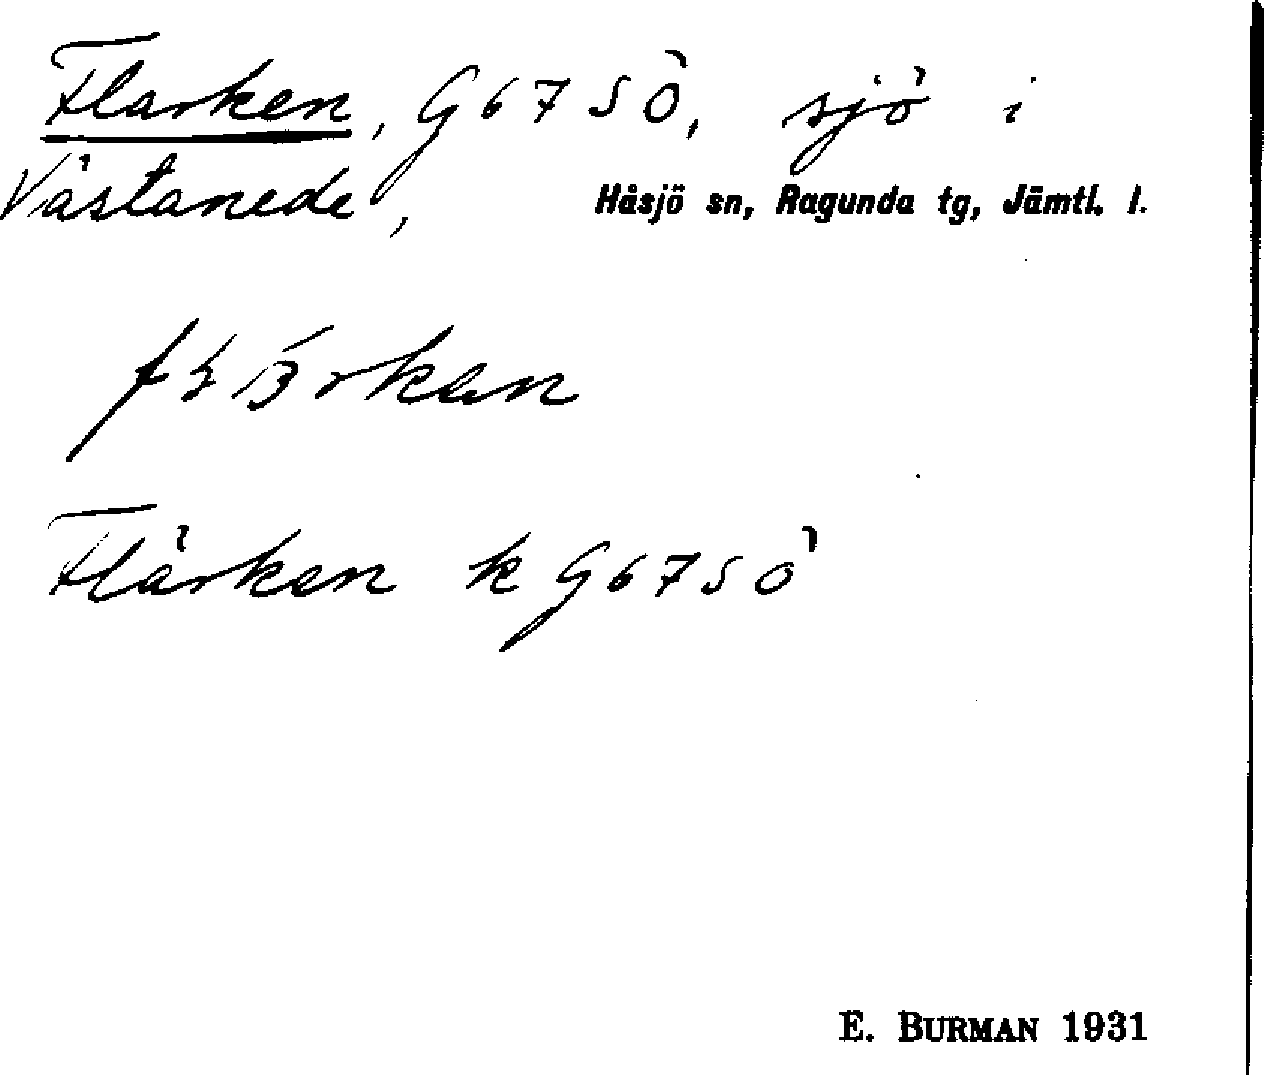 Flarken, G67SÖ, sjö i
Västanede, Håsjö sn, Ragunda tg, Jämtl. l.
Flärken k G67SÖ
E. BURMAN 1931